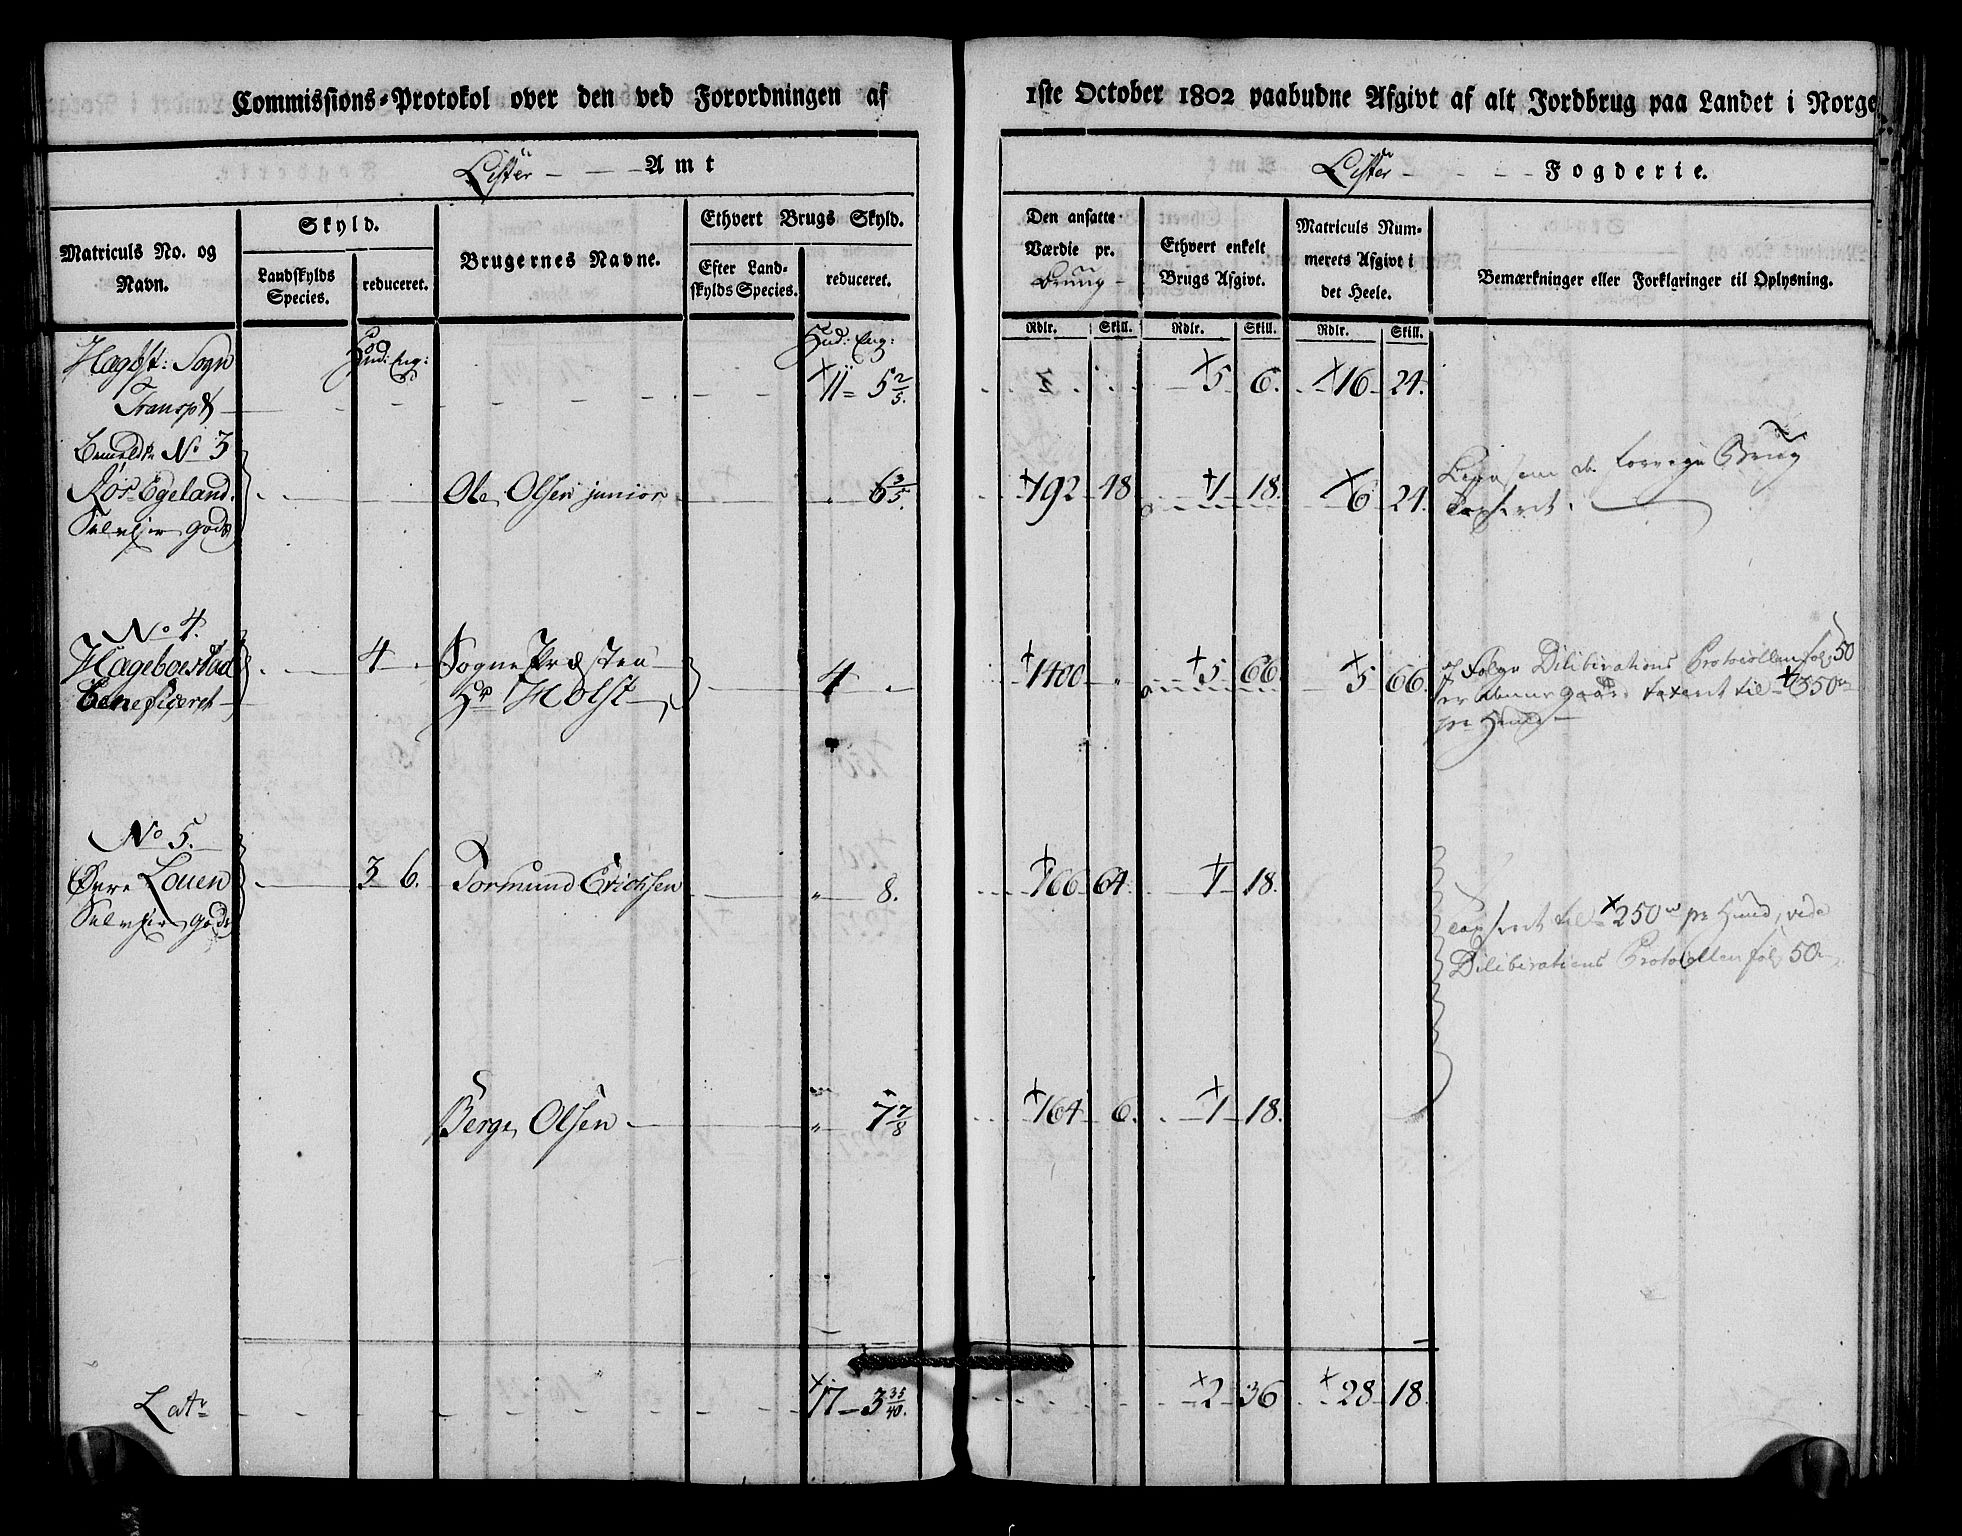 Commissions-Protokol over den ved Forordningen af
1ste October 1802 paabudne Afgivt af alt Jordbrug paa Landet i Norge
Lister Amt
Lister Fogderie.
Matriculs No. og Navn.
Skyld.
Landskylds Species.
reduceret.
Brugernes Navne.
Ethvert Brugs Skyld.
Efter Landskylds Species.
reduceret.
Den ansatte Værdie pr. Brug
Ethvert enkelt Brugs Afgivt.
Matriculs Nummerets Afgivt i det Heele.
Bemærkninger eller Forklaringer til Oplysning.
Rdlr. Skill. Rdlr. Skill. Rdlr. Skill.
Hud: Eng: Hud: Eng:
Hægbst: Sogn
Transpt 11 5 2/5. 5 6. 16 24.
No 3
Egeland.
Selveier Gods
Ole Olsen junior 6 3/5. 192 48 1 18. 6 24.
de forrige Brug
taxeret.
No 4.
Hægeboestad
Beneficeret
4 Sogne Præsten
Hr Holst 4 1400 5 66. 5 66.
I Følge Deliberations Protocollen fol: 50
er denne Gaard taxeret til 350
pr Hud
No 5.
Øvre Louen
Selveier Gods
3 6. Tormund Erichsen " 8. 166 64. 1 18.
taxeret til 250 pr Hud, vide
Deliberations Protocollen fol: 50
Berge Olsen " 7 7/8 164 6. 1 18.
Latr 17 3 35/40. 2 36 28 18.